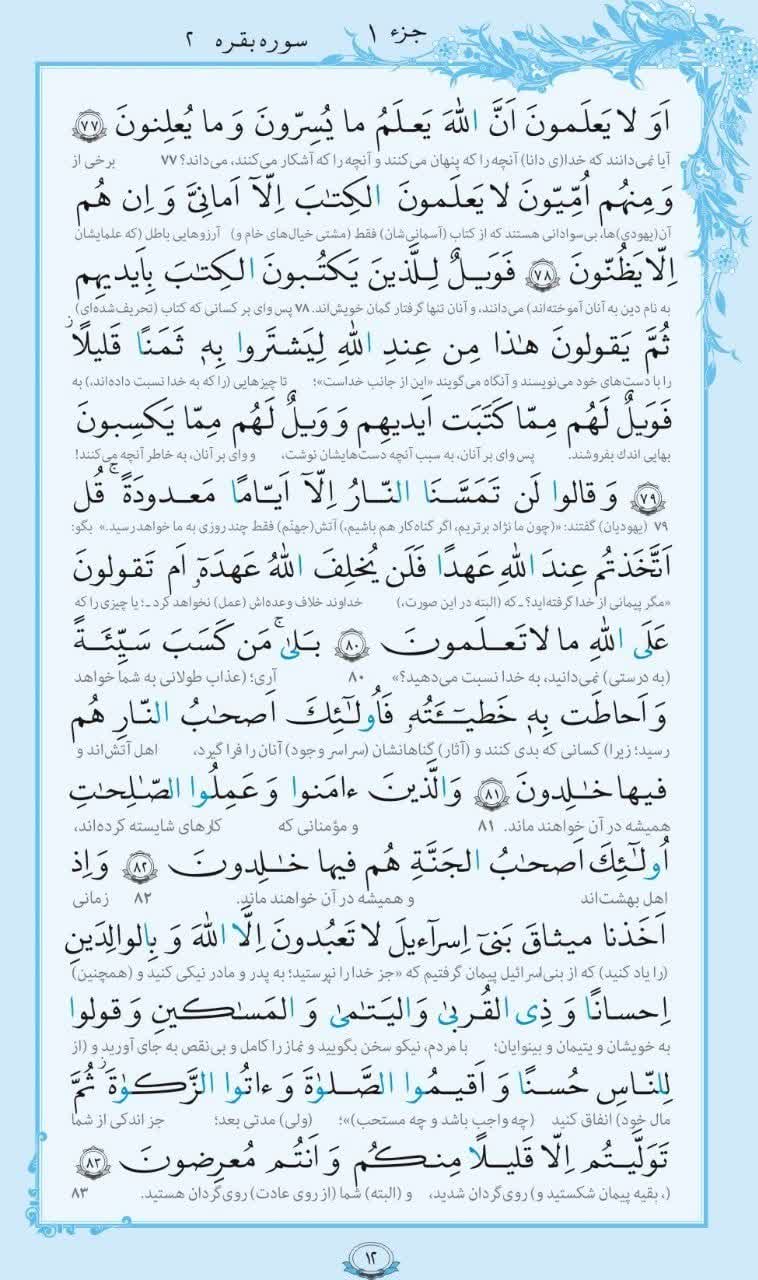 جزء ۱
سوره بقره ۲
اَوَ لا یَعلَمونَ اَنَّ اللّٰهَ یَعلَمُ ما یُسِرّونَ وَ ما یُعلِنونَ ۷۷
آیا نمی‌دانند که خدا(ی دانا) آنچه را که پنهان می‌کنند و آنچه را که آشکار می‌کنند، می‌داند؟ ۷۷ برخی از
وَ مِنهُم اُمِّیّونَ لا یَعلَمونَ الکِتٰبَ اِلّآ اَمانِیَّ وَ اِن هُم
آن(یهودی)ها، بی‌سوادانی هستند که از کتاب (آسمانی‌شان) فقط (مشتی خیال‌های خام و) آرزوهایی باطل (که علمایشان
اِلّا یَظُنّونَ ۷۸ فَوَیلٌ لِلَّذینَ یَکتُبونَ الکِتٰبَ بِاَیدیهِم
به نام دین به آنان آموخته‌اند) می‌دانند، و آنان تنها گرفتار گمان خویش‌اند. ۷۸ پس وای بر کسانی که کتاب (تحریف‌شده‌ای)
ثُمَّ یَقولونَ هٰذا مِن عِندِ اللّٰهِ لِیَشتَروا بِهٖ ثَمَنًا قَلیلًا ز
را با دست‌های خود می‌نویسند و آنگاه می‌گویند «این از جانب خداست»؛ تا چیزهایی (را که به خدا نسبت داده‌اند،) به
فَوَیلٌ لَهُم مِمّا کَتَبَت اَیدیهِم وَ وَیلٌ لَهُم مِمّا یَکسِبونَ
بهایی اندك بفروشند. پس وای بر آنان، به سبب آنچه دست‌هایشان نوشت، و وای بر آنان، به خاطر آنچه می‌کنند!
۷۹ وَ قالوا لَن تَمَسَّنَا النّارُ اِلّآ اَیّامًا مَعدودَةً ۚ قُل
۷۹ (یهودیان) گفتند: «(چون ما نژاد برتریم، اگر گناه‌کار هم باشیم،) آتش(جهنّم) فقط چند روزی به ما خواهد رسید.» بگو:
اَتَّخَذتُم عِندَ اللّٰهِ عَهدًا فَلَن یُخلِفَ اللّٰهُ عَهدَهٗ اَم تَقولونَ
«مگر پیمانی از خدا گرفته‌اید؟ ـ که (البته در این صورت،) خداوند خلاف وعده‌اش (عمل) نخواهد کرد ـ؛ یا چیزی را که
عَلَی اللّٰهِ ما لا تَعلَمونَ ۸۰ بَلیٰ ۚ مَن کَسَبَ سَیِّئَةً
(به درستی) نمی‌دانید، به خدا نسبت می‌دهید؟» ۸۰ آری؛ (عذاب طولانی به شما خواهد
وَ اَحاطَت بِهٖ خَطیـٓئَتُهٗ فَاُولٰٓئِكَ اَصحٰبُ النّارِ هُم
رسید؛ زیرا) کسانی که بدی کنند و (آثار) گناهانشان (سراسر وجود) آنان را فرا گیرد، اهل آتش‌اند و
فیها خٰلِدونَ ۸۱ وَ الَّذینَ ءامَنوا وَ عَمِلُوا الصّٰلِحٰتِ
همیشه در آن خواهند ماند. ۸۱ و مؤمنانی که کارهای شایسته کرده‌اند،
اُولٰٓئِكَ اَصحٰبُ الجَنَّةِ هُم فیها خٰلِدونَ ۸۲ وَ اِذ
اهل بهشت‌اند و همیشه در آن خواهند ماند. ۸۲ زمانی
اَخَذنا میثاقَ بَنیٓ اِسرآءیلَ لا تَعبُدونَ اِلَّا اللّٰهَ وَ بِالوالِدَینِ
(را یاد کنید) که از بنی‌اسرائیل پیمان گرفتیم که «جز خدا را نپرستید؛ به پدر و مادر نیکی کنید و (همچنین)
اِحسانًا وَ ذِی القُربیٰ وَ الیَتٰمیٰ وَ المَسٰکینِ وَ قولوا
به خویشان و یتیمان و بینوایان؛ با مردم، نیکو سخن بگویید و نماز را کامل و بی‌نقص به جای آورید و (از
لِلنّاسِ حُسنًا وَ اَقیمُوا الصَّلوٰةَ وَ ءاتُوا الزَّکوٰةَ ز ثُمَّ
مال خود) انفاق کنید (چه واجب باشد و چه مستحب)»؛ (ولی) مدتی بعد؛ جز اندکی از شما
تَوَلَّیتُم اِلّا قَلیلًا مِنکُم وَ اَنتُم مُعرِضونَ ۸۳
(، بقیه پیمان شکستید و) روی‌گردان شدید، و (البته) شما (از روی عادت) روی‌گردان هستید. ۸۳
۱۲